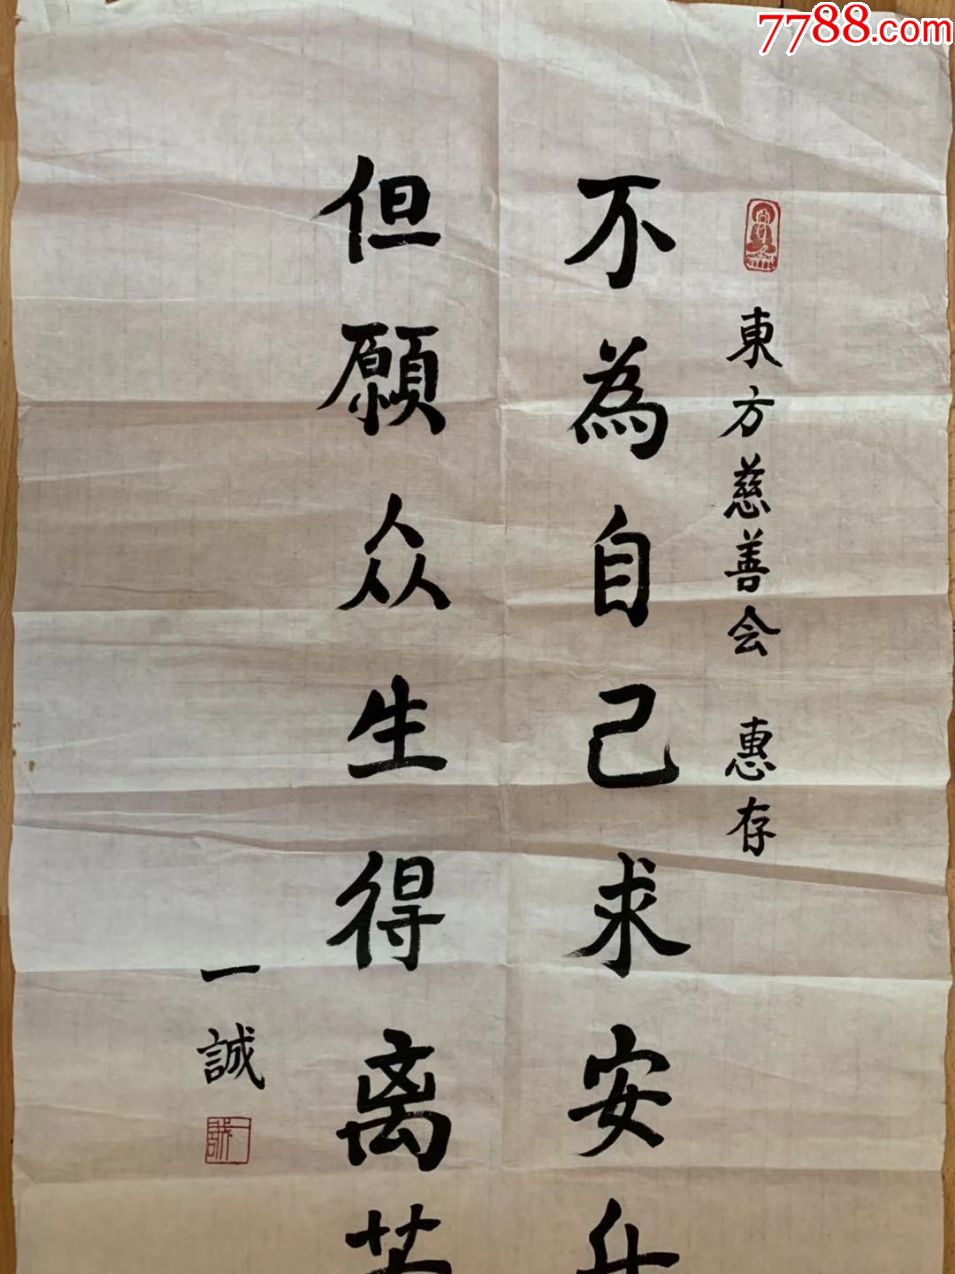 7788.com
東方慈善会 惠存
不為自己求安
但願众生得离苦
一誠
一誠